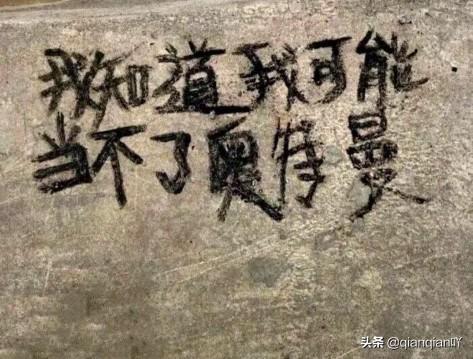 我知道我可能
当不了奥特曼
头条 @qianqian吖